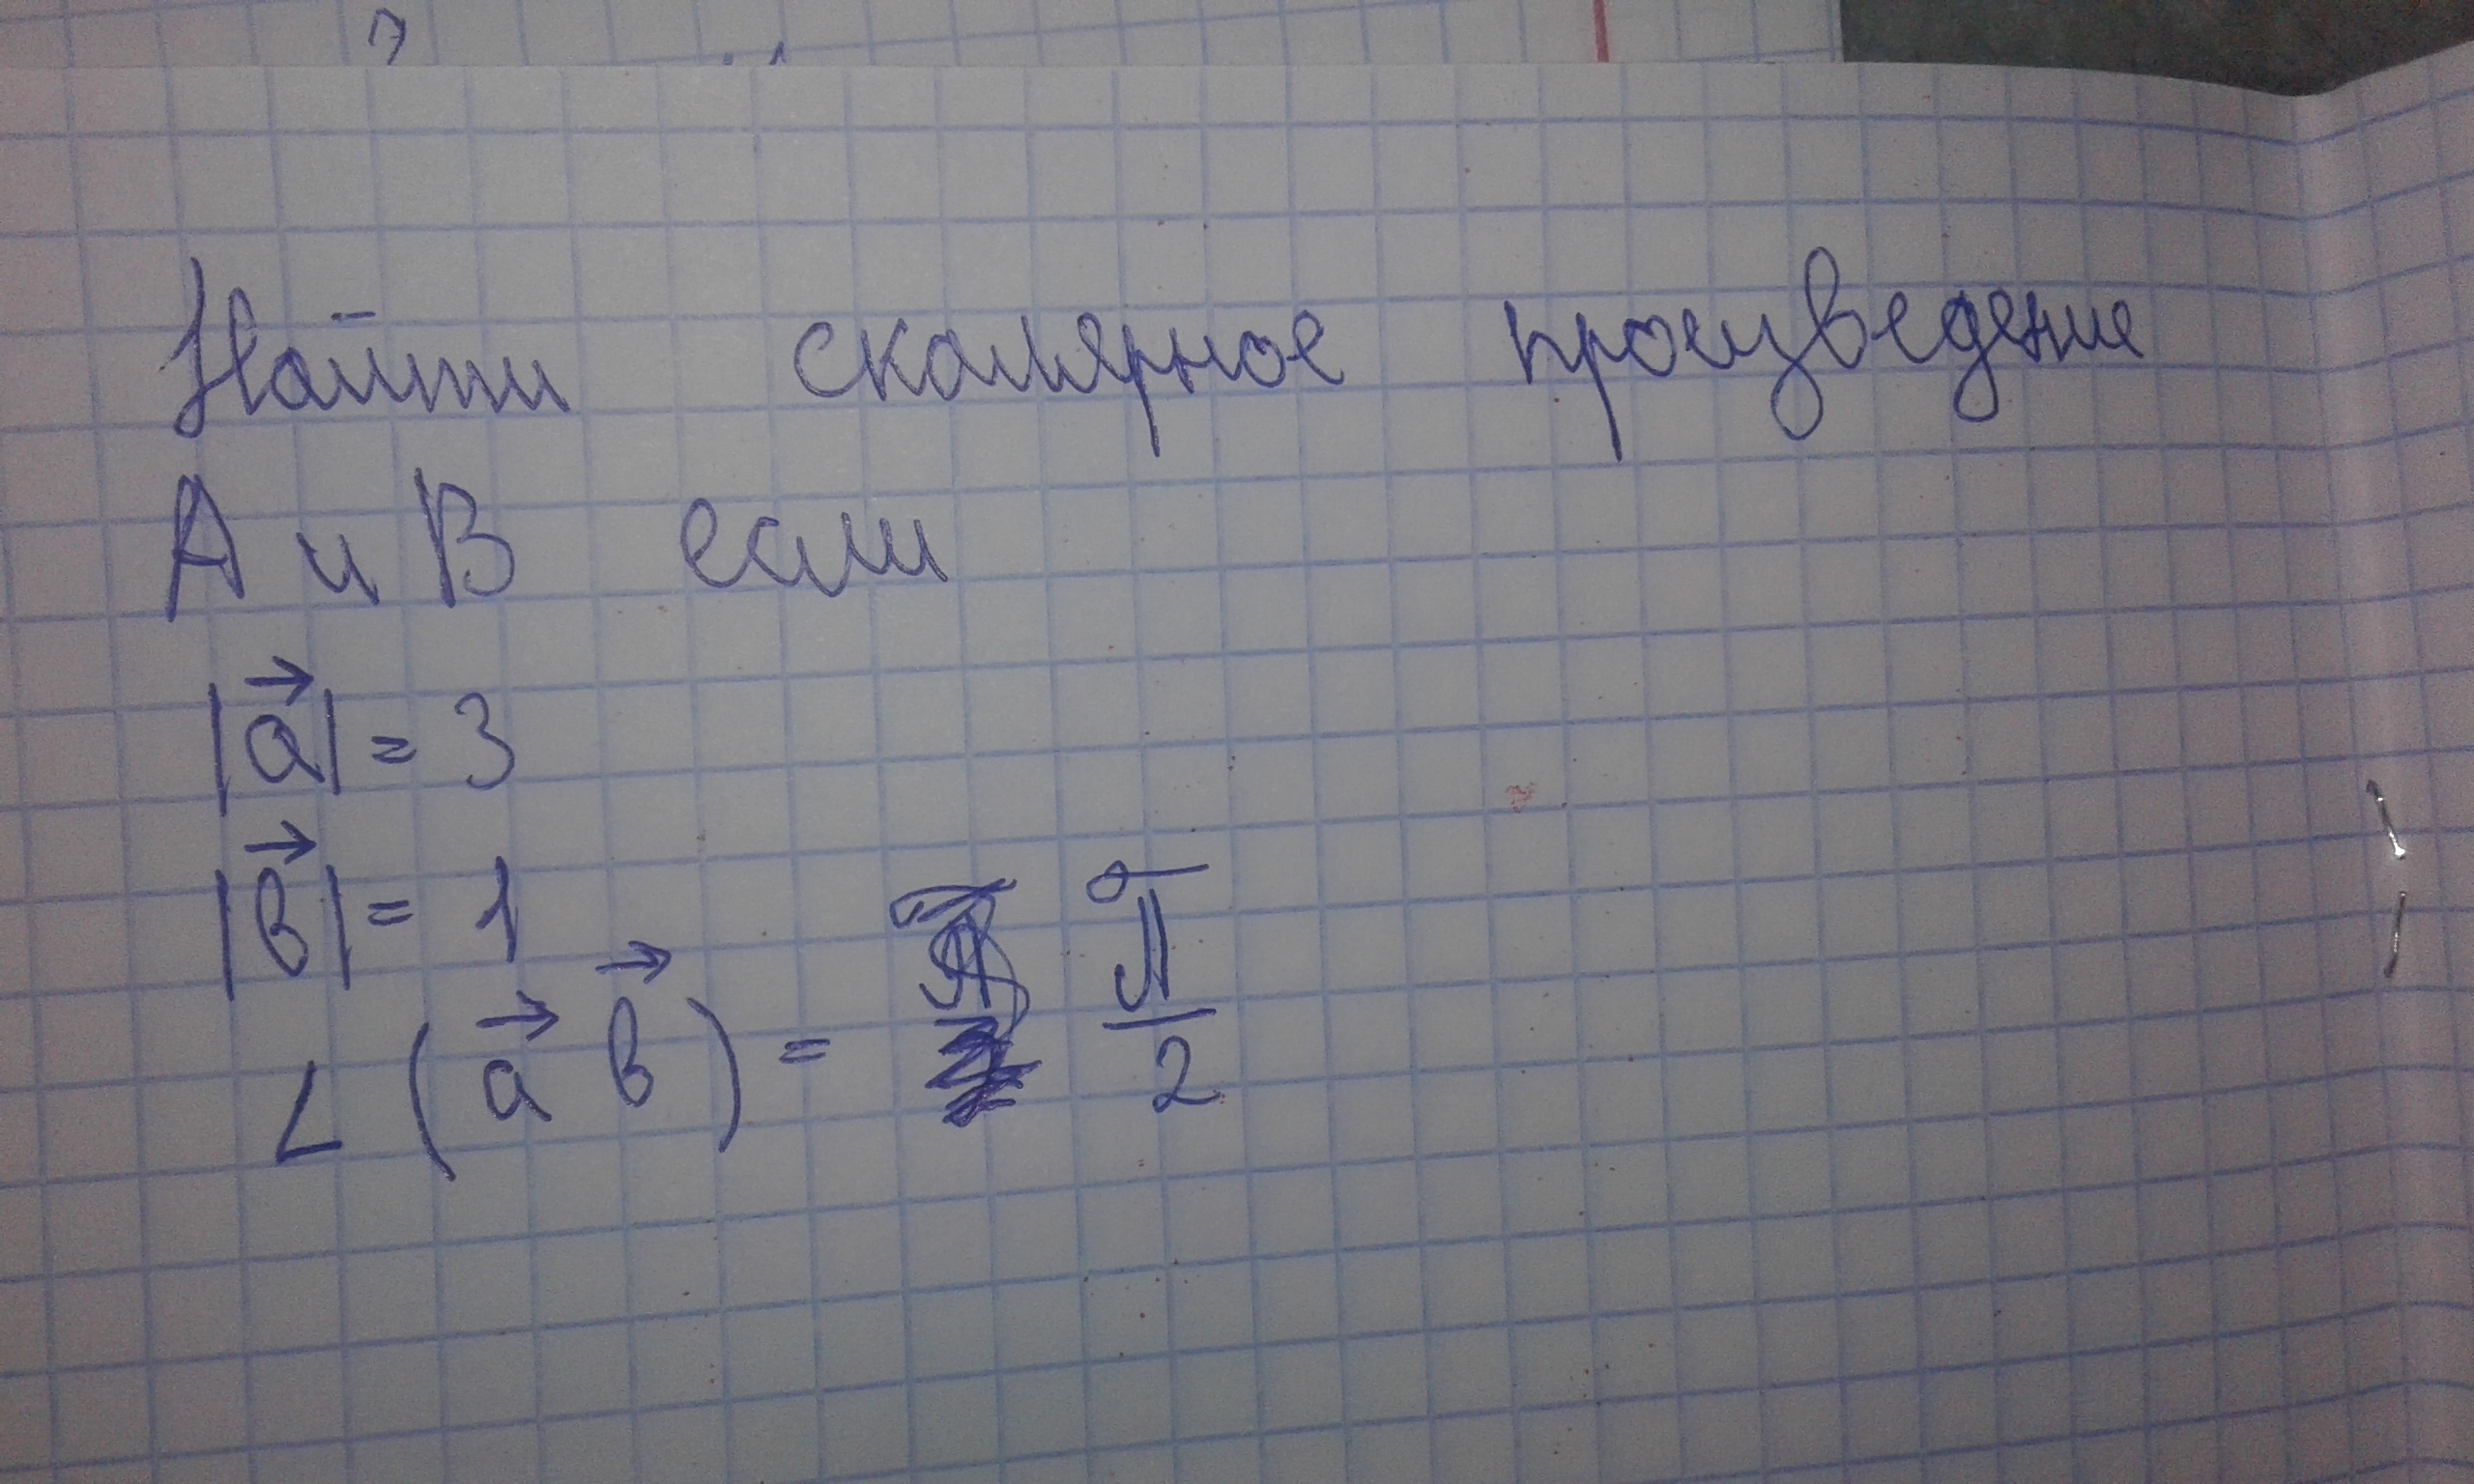 Найти скалярное произведение
А и В если
|a⃗| = 3
|b⃗| = 1
∠ (a⃗ b⃗) = π/2